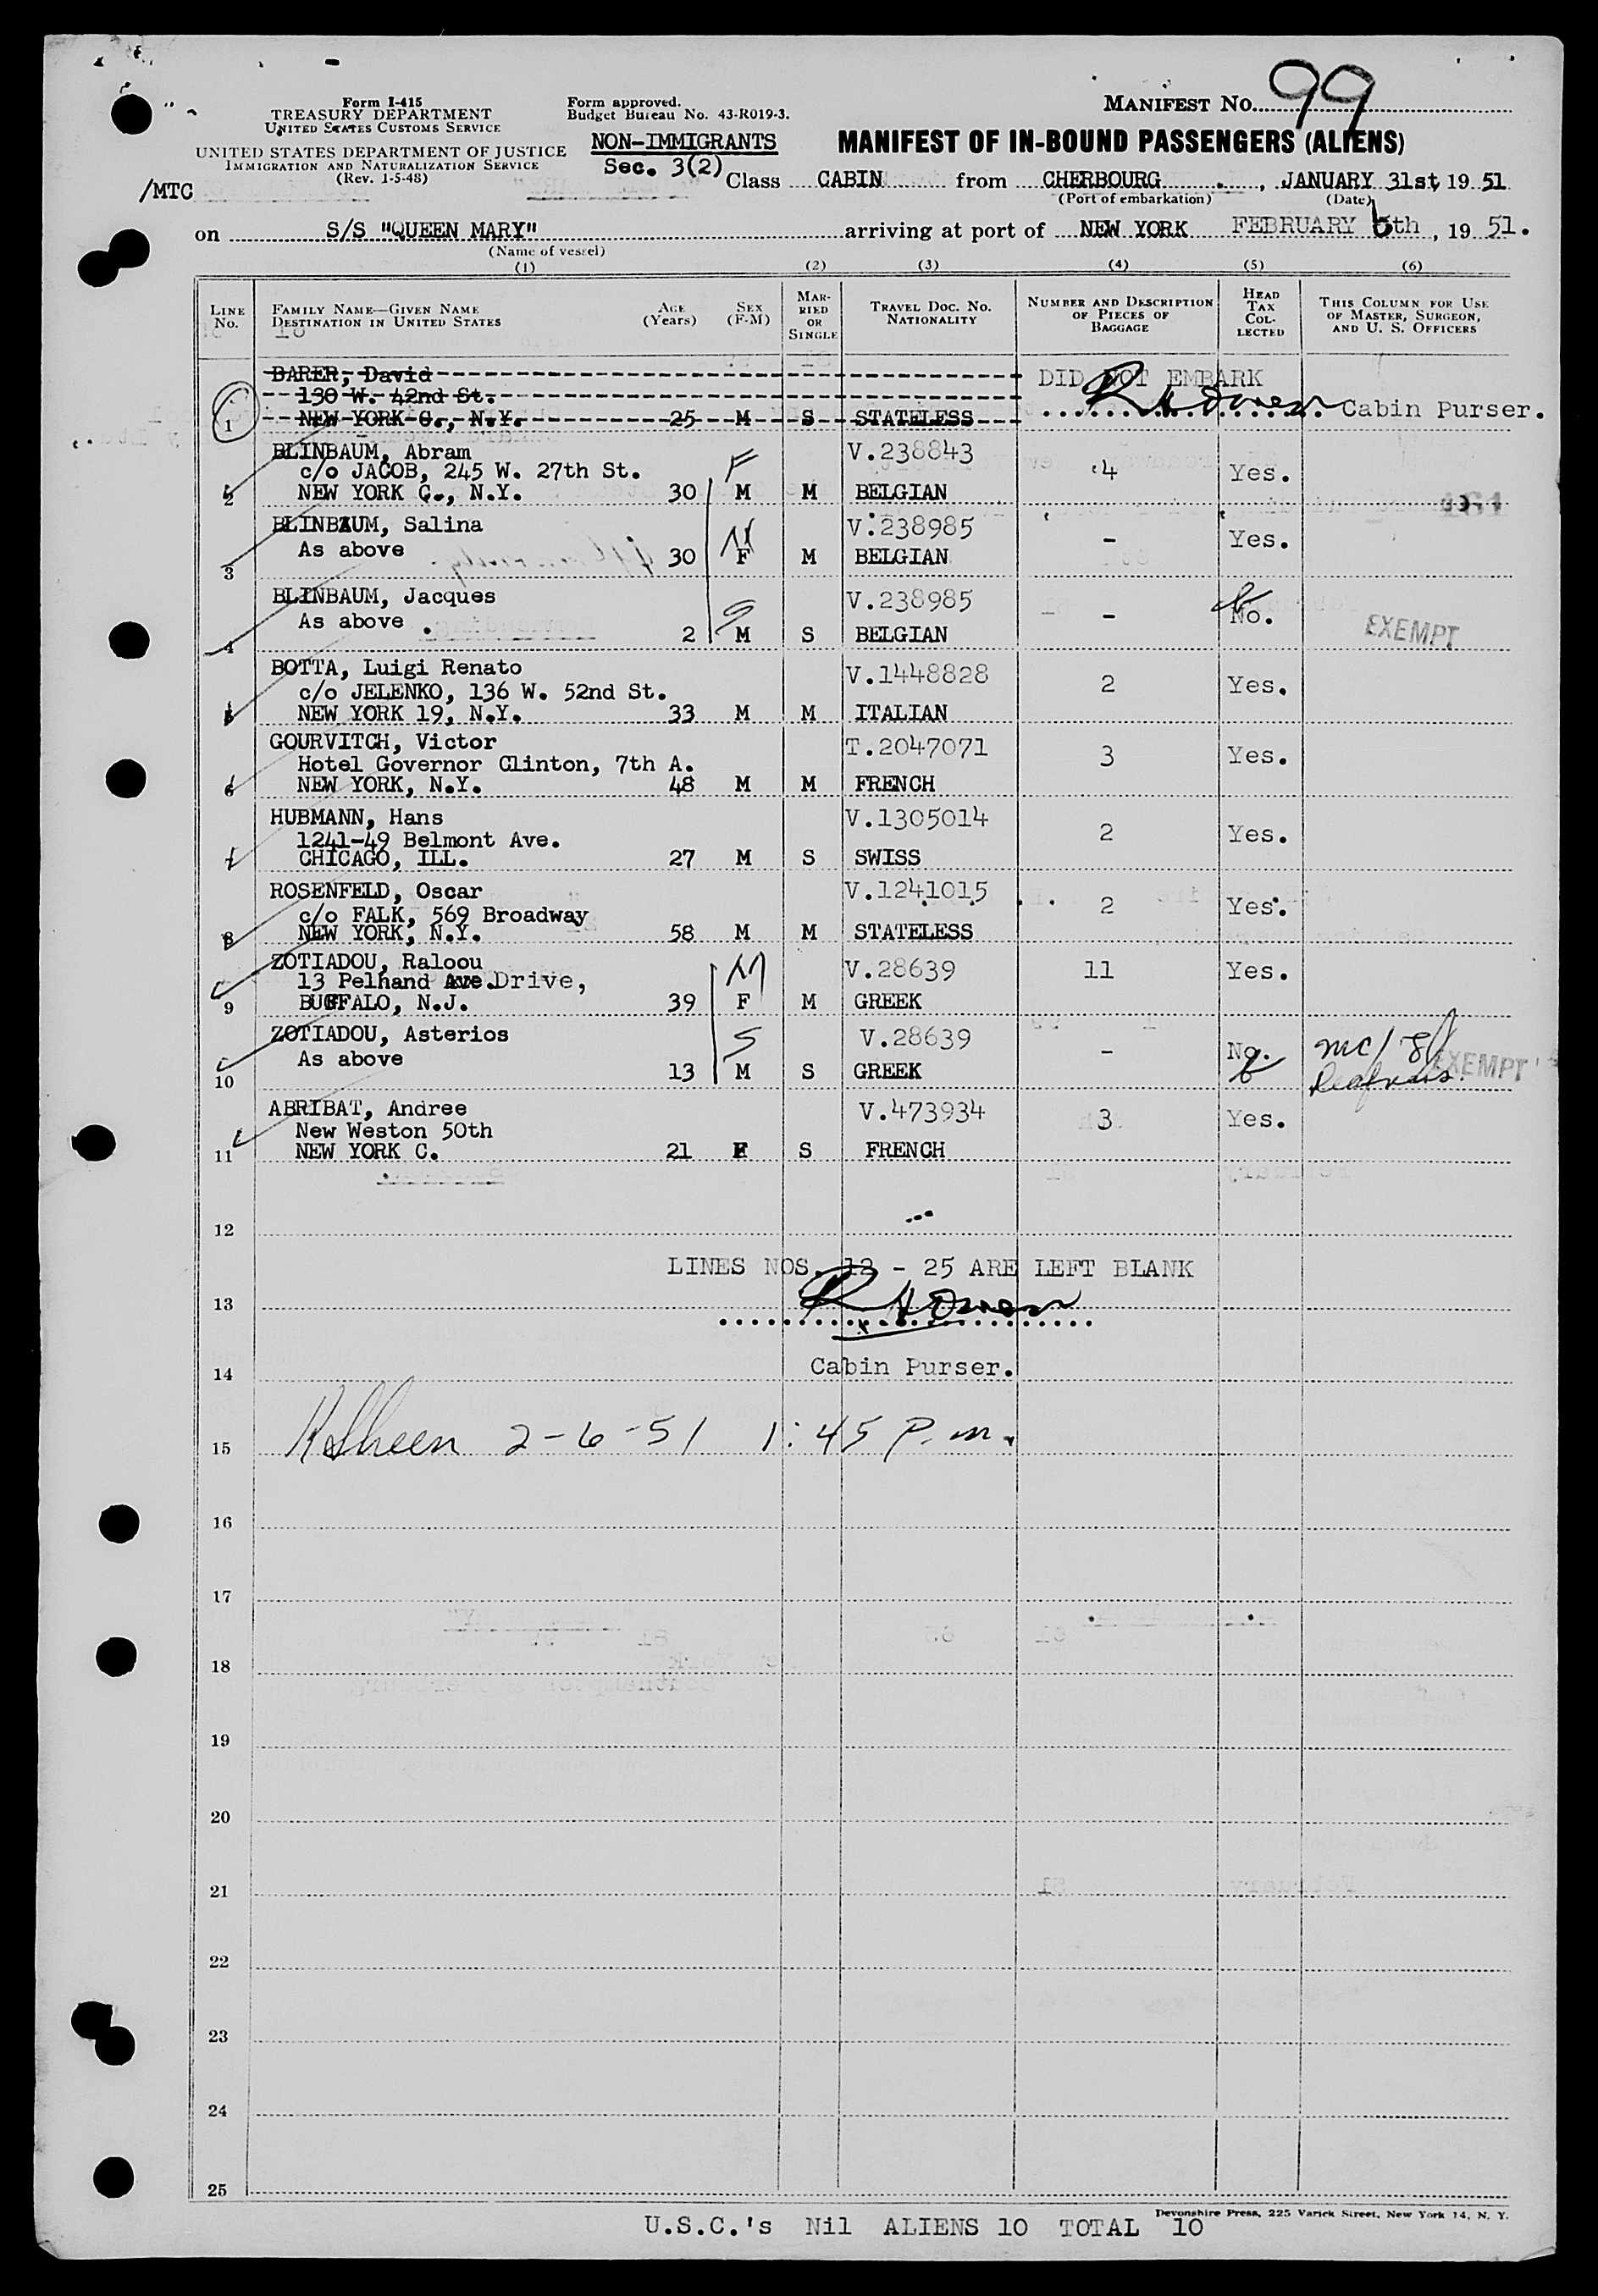 Form I-415
TREASURY DEPARTMENT
UNITED STATES CUSTOMS SERVICE
UNITED STATES DEPARTMENT OF JUSTICE
IMMIGRATION AND NATURALIZATION SERVICE
(Rev. 1-5-48)
/MTC
Form approved.
Budget Bureau No. 43-R019-3.
NON-IMMIGRANTS
Sec. 3(2)
MANIFEST NO. 99
MANIFEST OF IN-BOUND PASSENGERS (ALIENS)
Class CABIN from CHERBOURG, JANUARY 31st, 19 51
(Port of embarkation) (Date)
on S/S "QUEEN MARY" arriving at port of NEW YORK FEBRUARY 6th, 19 51.
(Name of vessel)
(1) (2) (3) (4) (5) (6)
LINE NO.
FAMILY NAME—GIVEN NAME
DESTINATION IN UNITED STATES
AGE (Years)
SEX (F-M)
MARRIED OR SINGLE
TRAVEL DOC. NO.
NATIONALITY
NUMBER AND DESCRIPTION OF PIECES OF BAGGAGE
HEAD TAX COLLECTED
THIS COLUMN FOR USE OF MASTER, SURGEON, AND U. S. OFFICERS
BARER, David DID NOT EMBARK
130 W. 42nd St. R H Owen Cabin Purser.
1 NEW YORK C., N.Y. 25 M S STATELESS
BLINBAUM, Abram V.238843
c/o JACOB, 245 W. 27th St. F 4 Yes.
2 NEW YORK C., N.Y. 30 M M BELGIAN
BLINBAUM, Salina V.238985
As above M - Yes.
3 30 F M BELGIAN
BLINBAUM, Jacques V.238985
As above S - No. EXEMPT
4 2 M S BELGIAN
BOTTA, Luigi Renato V.1448828
c/o JELENKO, 136 W. 52nd St. 2 Yes.
5 NEW YORK 19, N.Y. 33 M M ITALIAN
GOURVITCH, Victor T.2047071
Hotel Governor Clinton, 7th A. 3 Yes.
6 NEW YORK, N.Y. 48 M M FRENCH
HUBMANN, Hans V.1305014
1241-49 Belmont Ave. 2 Yes.
7 CHICAGO, ILL. 27 M S SWISS
ROSENFELD, Oscar V.1241015
c/o FALK, 569 Broadway 2 Yes.
8 NEW YORK, N.Y. 58 M M STATELESS
ZOTIADOU, Raloou M V.28639 11 Yes.
13 Pelhand Ave. Drive,
9 BUFFALO, N.J. 39 F M GREEK
ZOTIADOU, Asterios S V.28639
As above - No. EXEMPT
10 13 M S GREEK
ABRIBAT, Andree V.473934
New Weston 50th 3 Yes.
11 NEW YORK C. 21 F S FRENCH
12
LINES NOS. 12 - 25 ARE LEFT BLANK
13 R H Owen
14 Cabin Purser.
15 2-6-51 1:45 P.m.
16
17
18
19
20
21
22
23
24
25
Devonshire Press, 225 Varick Street, New York 14, N. Y.
U.S.C.'s Nil ALIENS 10 TOTAL 10